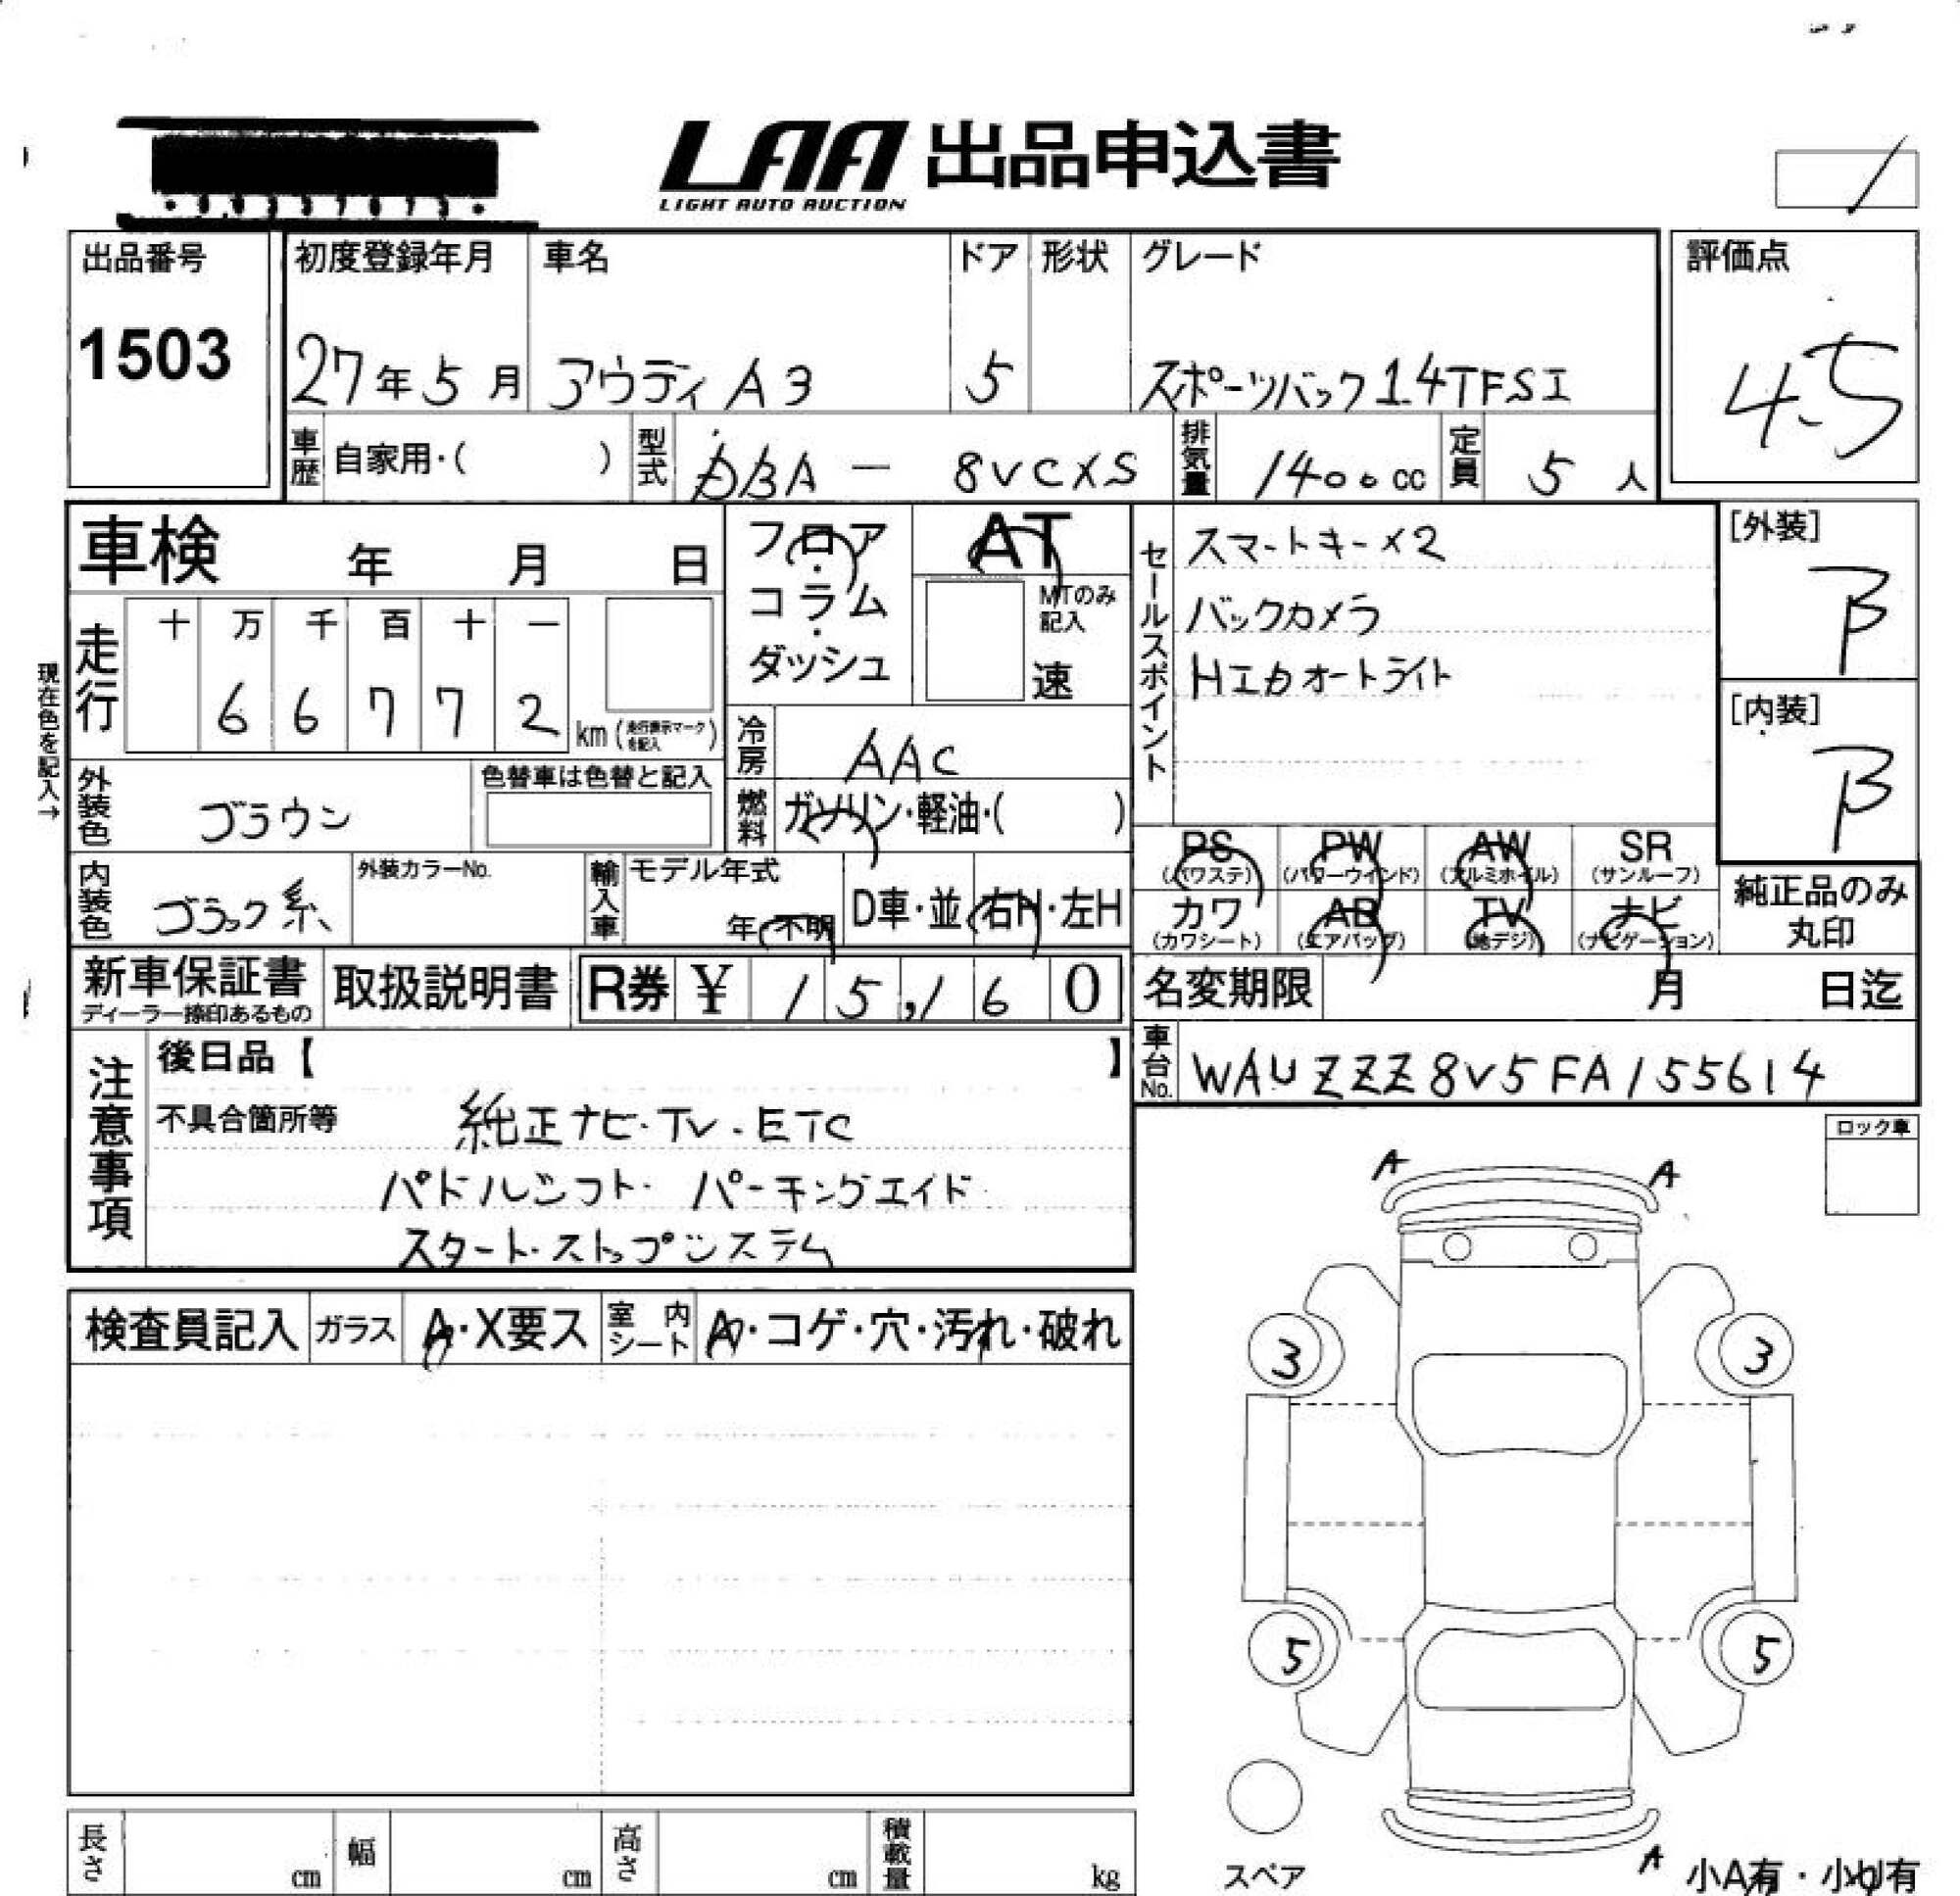 LAA 出品申込書
LIGHT AUTO AUCTION
出品番号
1503
初度登録年月 車名 ドア 形状 グレード
27年5月 アウディ A3 5 スポーツバック 1.4TFSI
評価点
4.5
車歴 自家用・( ) 型式 DBA - 8VCXS 排気量 1400cc 定員 5人
車検 年 月 日
フロア・コラム・ダッシュ
AT
MTのみ記入
速
セールスポイント
スマートキー×2
バックカメラ
HIDオートライト
[外装]
B
[内装]
B
現在色を記入→
走行 十 万 千 百 十 一
6 6 7 7 2 km (走行表示マークを記入)
冷房 AAC
外装色 ブラウン
色替車は色替と記入
燃料 ガソリン・軽油・( )
PS (パワステ) PW (パワーウインド) AW (アルミホイル) SR (サンルーフ)
カワ (カワシート) AB (エアバッグ) TV (地デジ) ナビ (ナビゲーション)
純正品のみ
丸印
内装色 ブラック系
外装カラーNo.
輸入車 モデル年式 年・不明 D車・並 右H・左H
新車保証書
ディーラー捺印あるもの
取扱説明書
R券 ¥ 15,160
名変期限 月 日迄
車台No. WAUZZZ8V5FA155614
注意事項
後日品【 】
不具合箇所等
純正ナビ・TV・ETC
パドルシフト・パーキングエイド
スタート・ストップシステム
ロック車
A A
3 3
5 5
検査員記入 ガラス A・X要ス 室内シート A・コゲ・穴・汚れ・破れ
長さ cm 幅 cm 高さ cm 積載量 kg
スペア
A
小A有・小U有